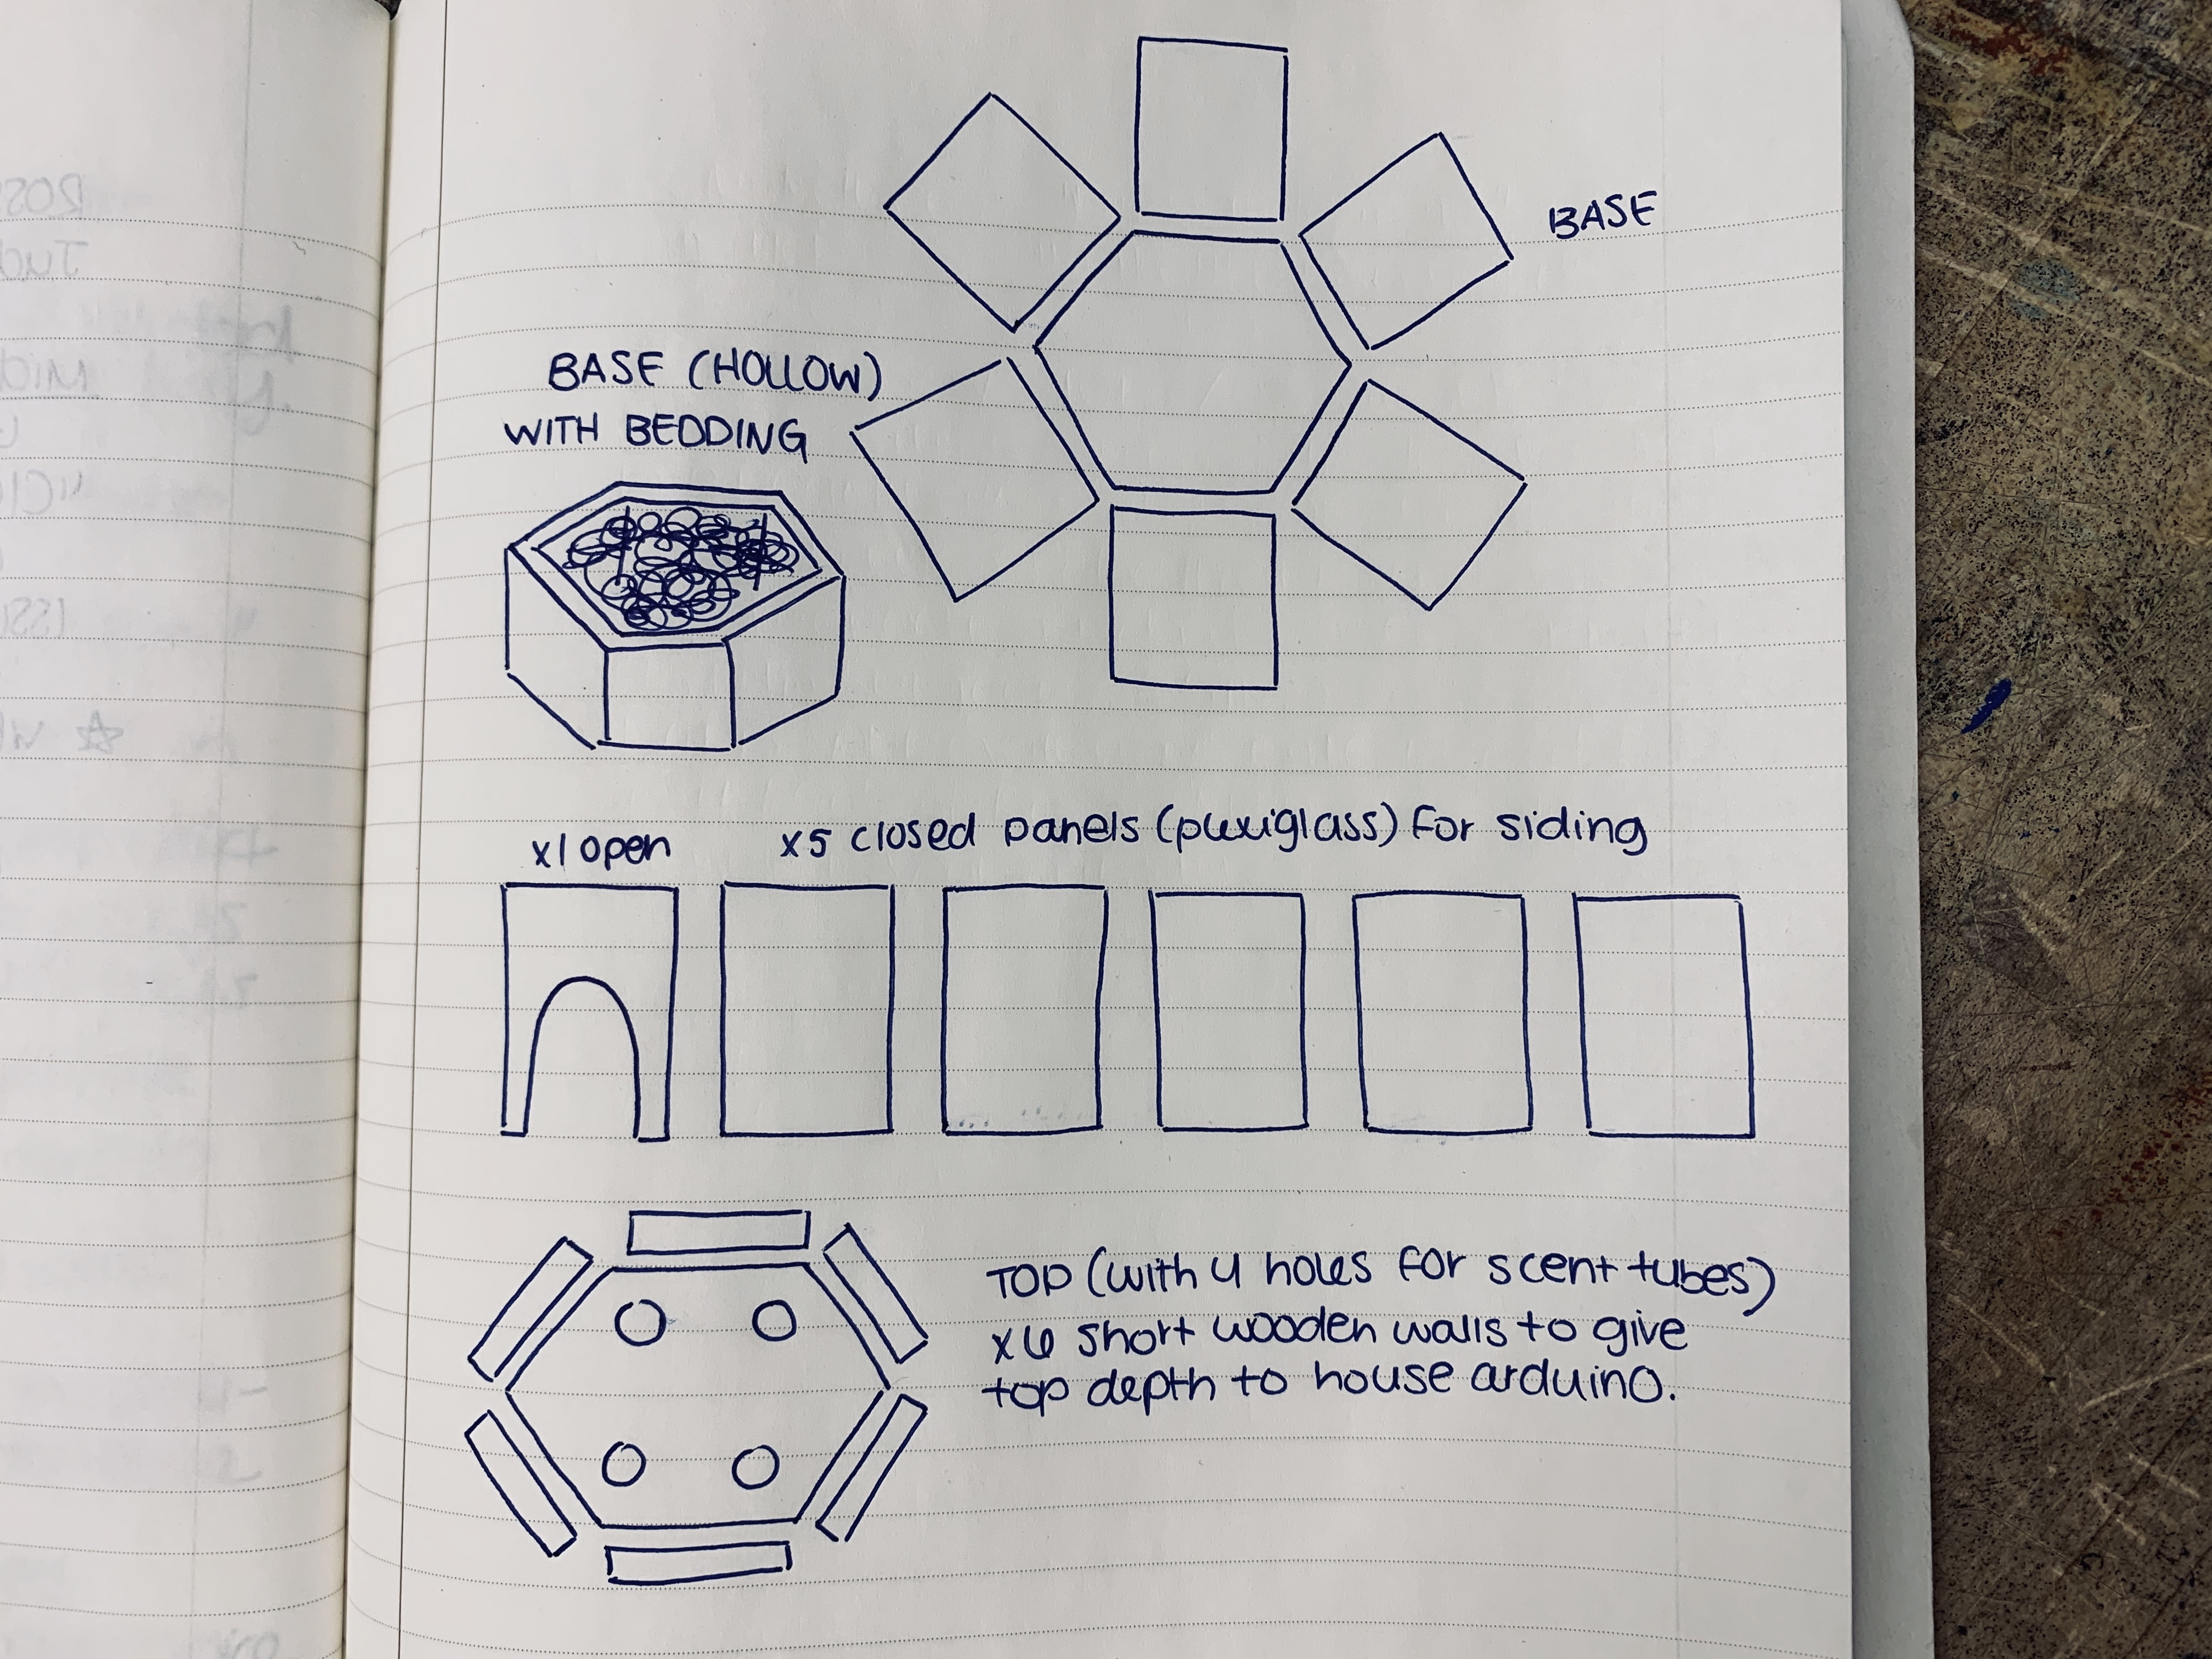 BASE
BASE (HOLLOW)
WITH BEDDING
x1 open
x5 closed panels (plexiglass) for siding
TOP (with 4 holes for scent tubes)
x6 short wooden walls to give
top depth to house arduino.